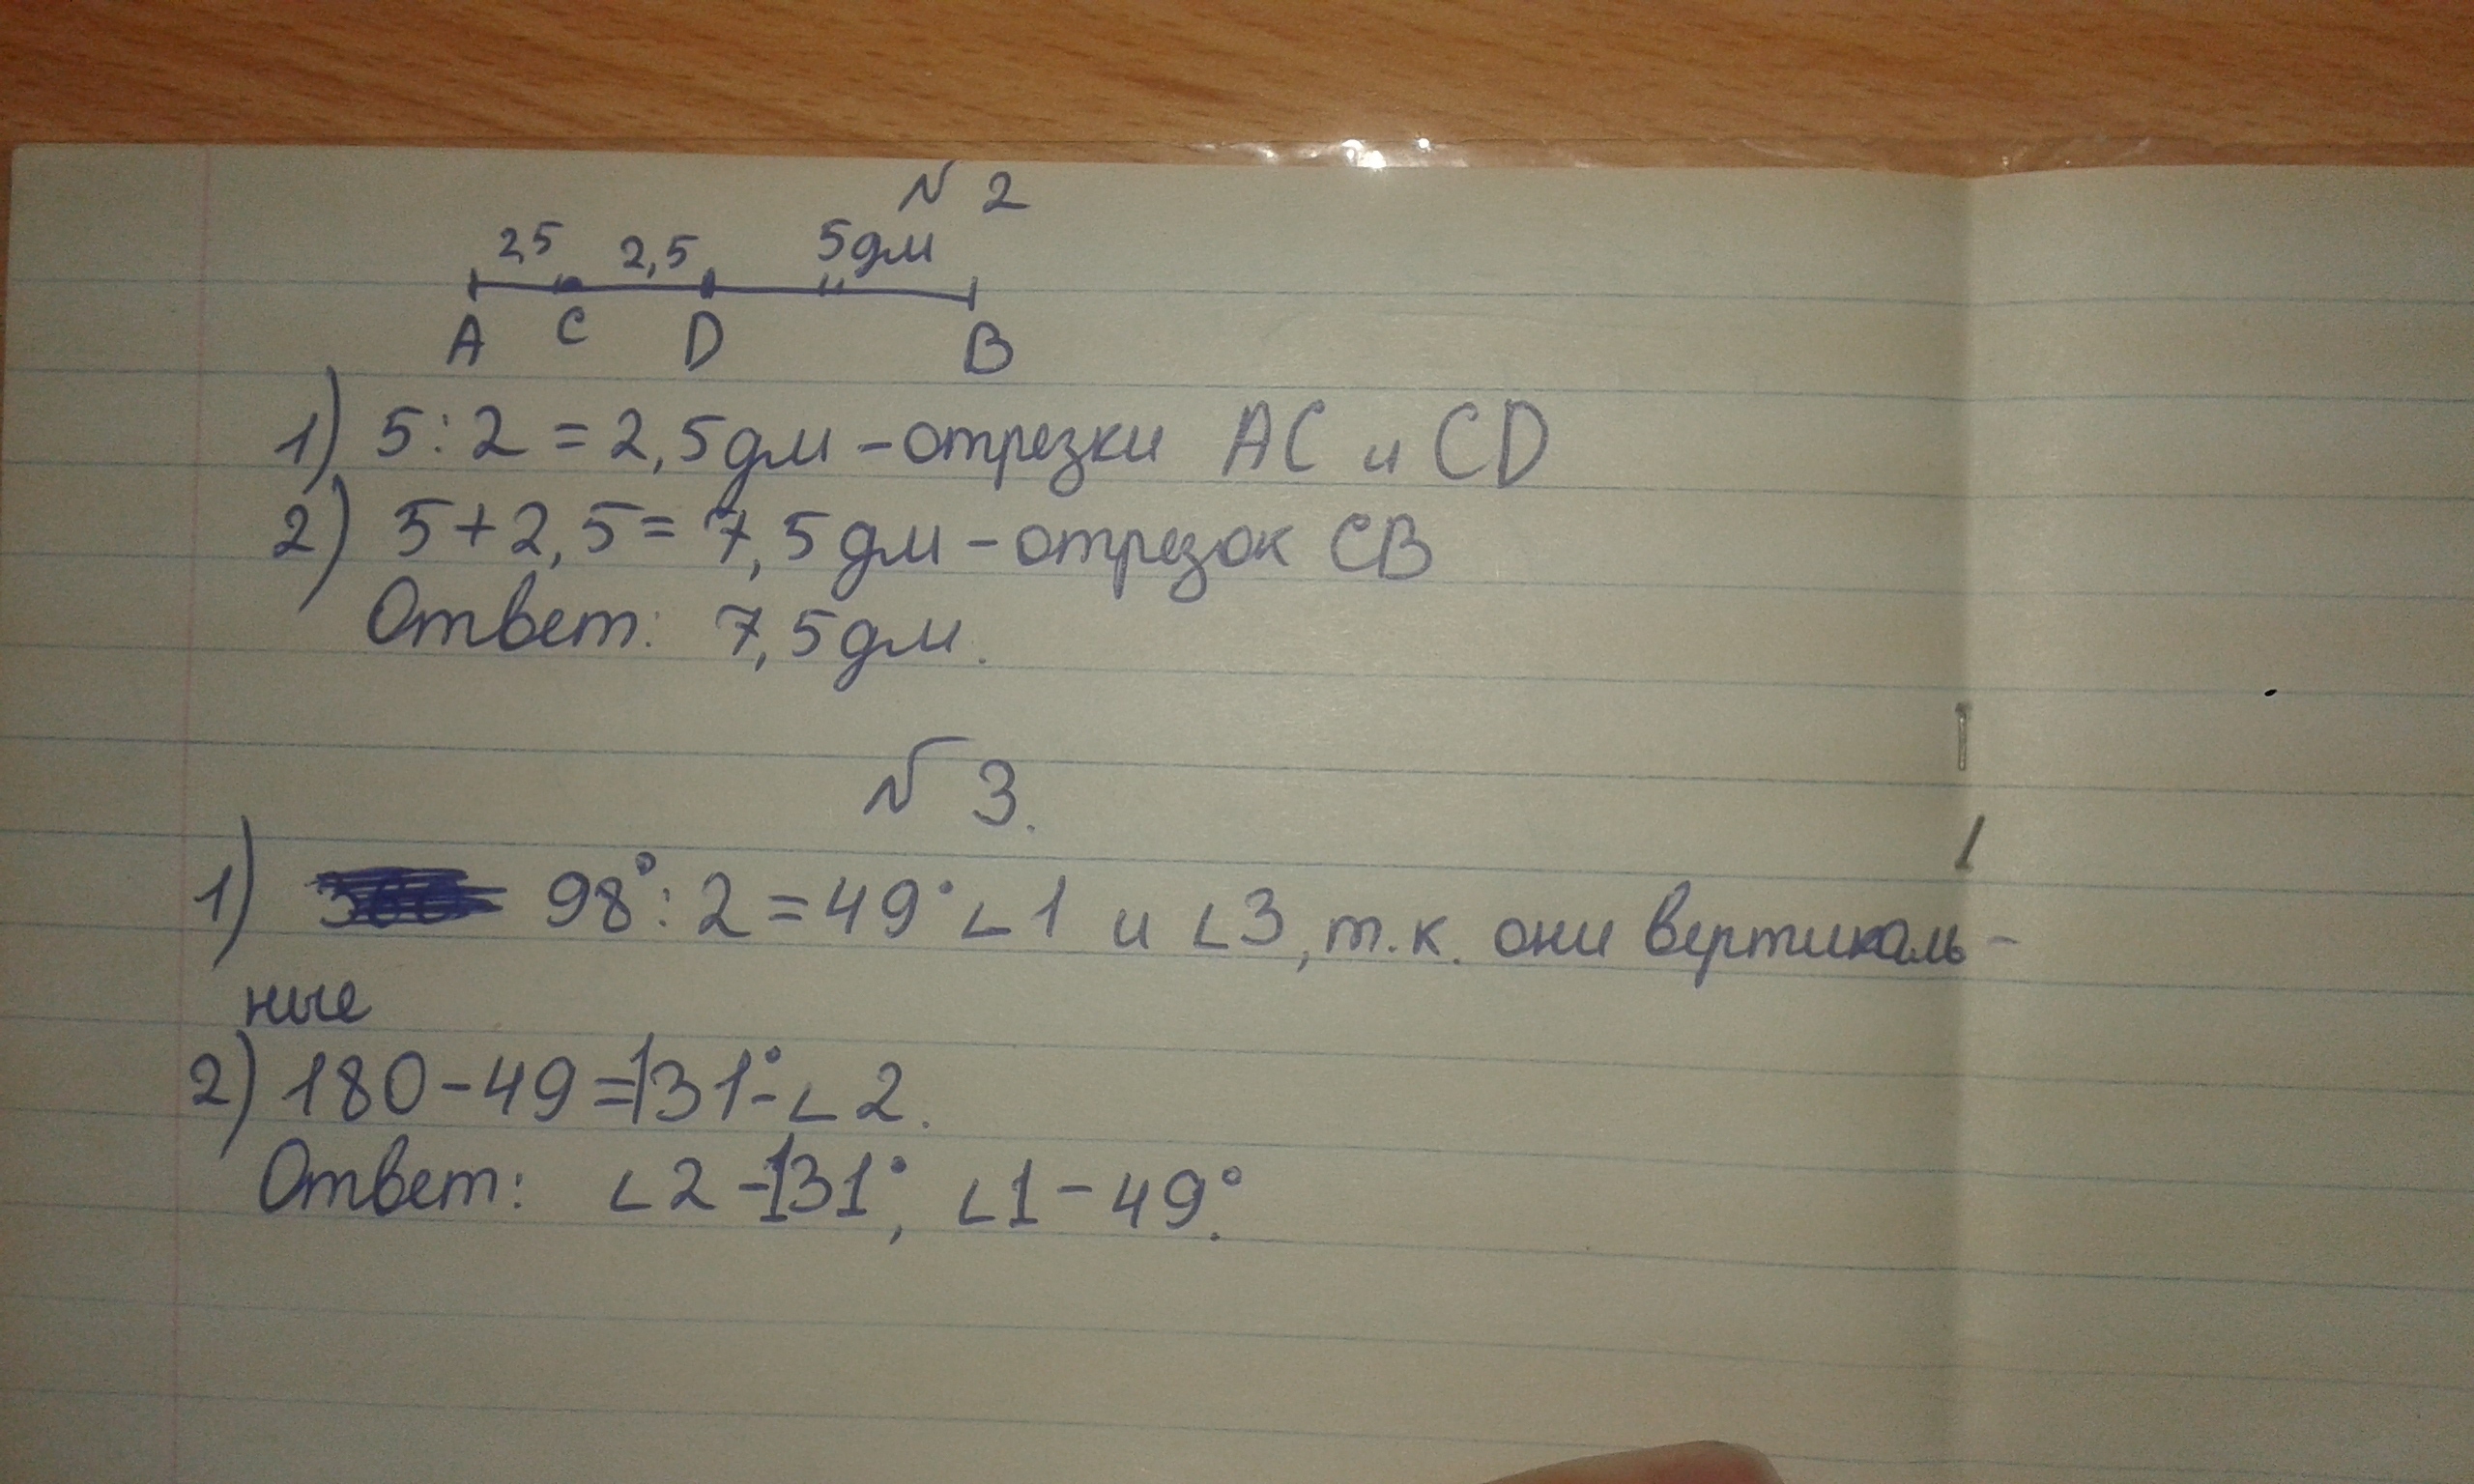 № 2
2,5 2,5 5дм
A C D B
1) 5:2=2,5дм-отрезки AC и CD
2) 5+2,5=7,5дм-отрезок CB
Ответ: 7,5дм.
№ 3.
1) 98°:2=49° ∠1 и ∠3, т.к. они вертикаль-
ные
2) 180-49=131°-∠2.
Ответ: ∠2-131°, ∠1-49°.